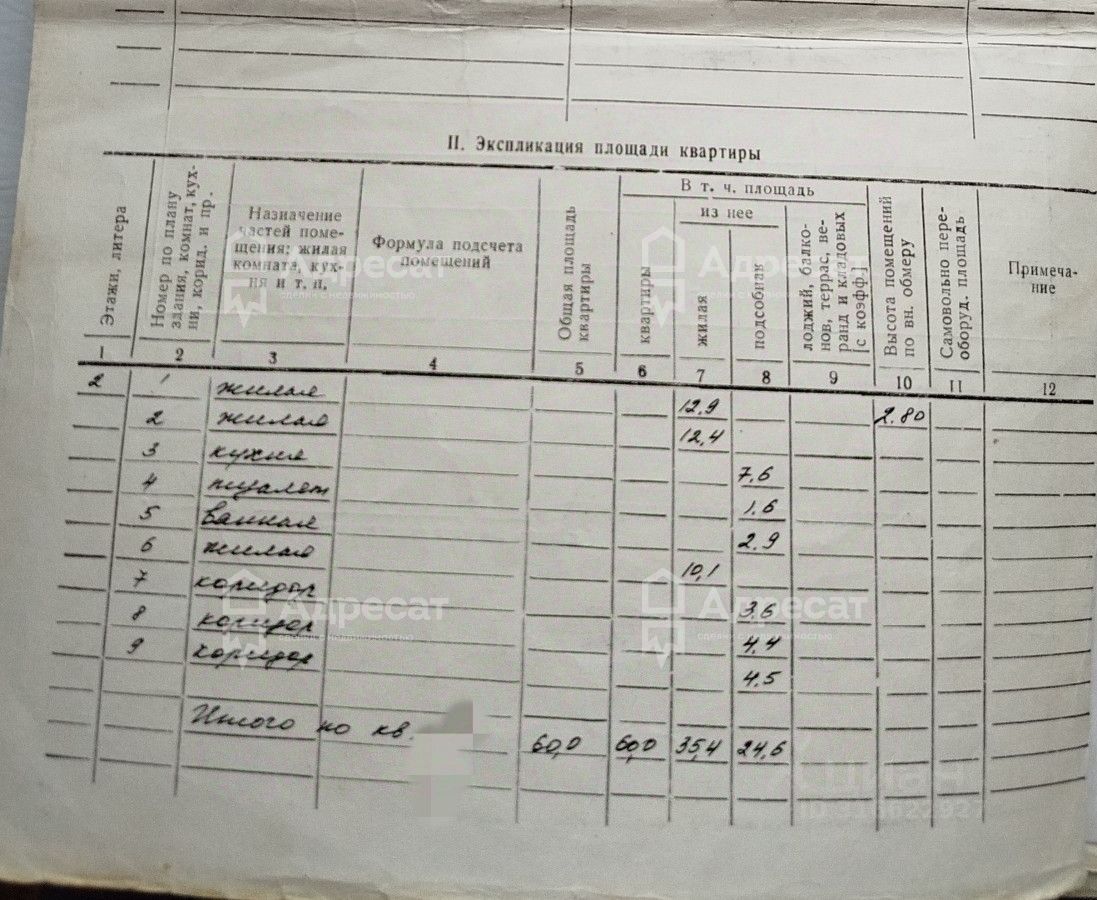 II. Экспликация площади квартиры
Этажи, литера
Номер по плану
здания, комнат, кух-
ни, корид. и пр.
Назначение
частей поме-
щения: жилая
комната, кух-
ня и т. п.
Формула подсчета
помещений
Общая площадь
квартиры
В т. ч. площадь
из нее
квартиры
жилая
подсобная
лоджий, балко-
нов, террас, ве-
ранд и кладовых
[с коэфф.]
Высота помещений
по вн. обмеру
Самовольно пере-
оборуд. площадь
Примеча-
ние
1 2 3 4 5 6 7 8 9 10 11 12
2 1 жилая 12,9 2.80
2 жилая 12,4
3 кухня 7.6
4 туалет 1.6
5 ванная 2.9
6 жилая 10,1
7 коридор 3.6
8 коридор 4.4
9 коридор 4.5
Итого по кв. 60,0 60,0 35,4 24,6
Адресат
сделки с недвижимостью
Адресат
Адресат
сделки с недвижимостью
Адресат
сделки с недвижимостью
циан